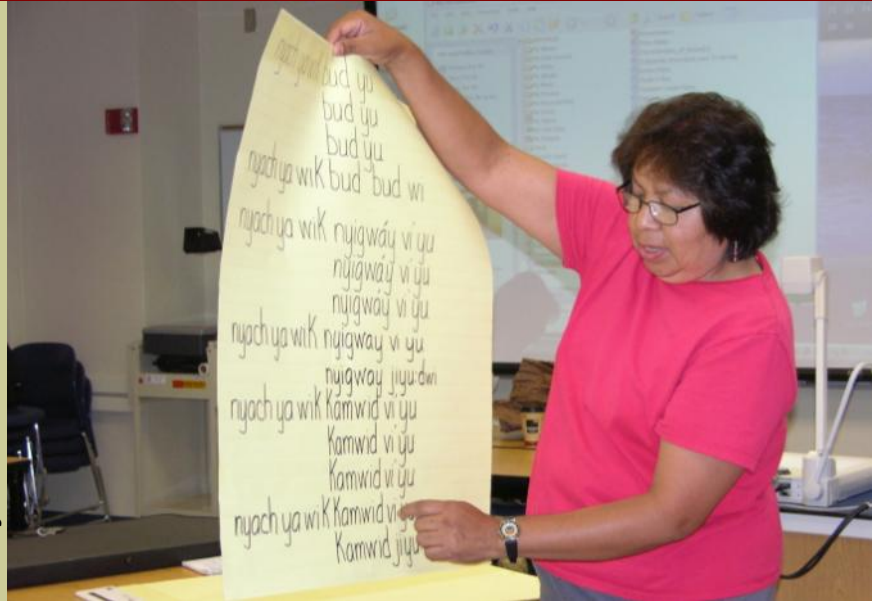 nyach ya wiK bud yu
bud yu
bud yu
nyach ya wiK bud bud wi
nyach ya wiK nyigwáy vi yu
nyigwáy vi yu
nyigwáy vi yu
nyach ya wiK nyigway vi yu
nyigway jiyu:dwi
nyach ya wiK Kamwid vi yu
Kamwid vi yu
Kamwid vi yu
nyach ya wiK Kamwid vi
Kamwid jiyu